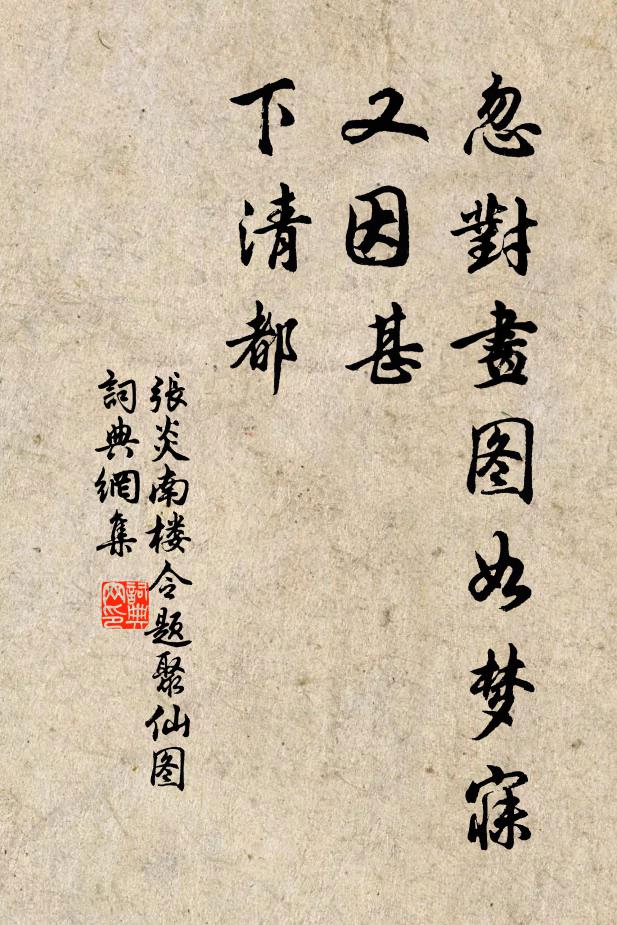 忽對畫图如梦寐
又因甚
下清都
張炎南楼令题聚仙图
詞典網集
詞典网印